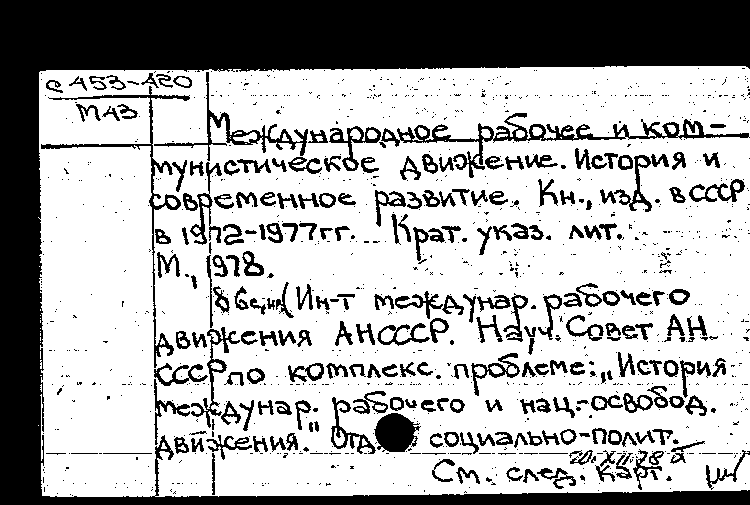 е 453-420
М43
Международное рабочее и ком-
мунистическое движение. История и
современное развитие. Кн., изд. в СССР
в 1972-1977гг. Крат. указ. лит.
М., 1978.
(Ин-т междунар. рабочего
движения АН СССР. Науч. Совет АН
СССР по комплекс. проблеме: „История
междунар. рабочего и нац.-освобод.
движения." Отд. социально-полит.
20.XII.78
См. след. карт.